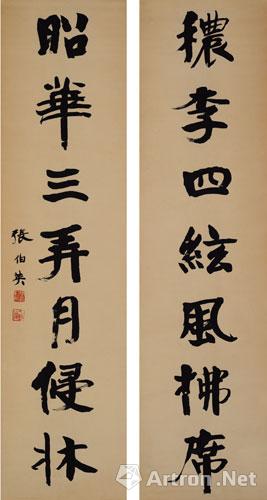 穠李四絃風拂席
昭華三弄月侵牀
張伯英
Artron.Net